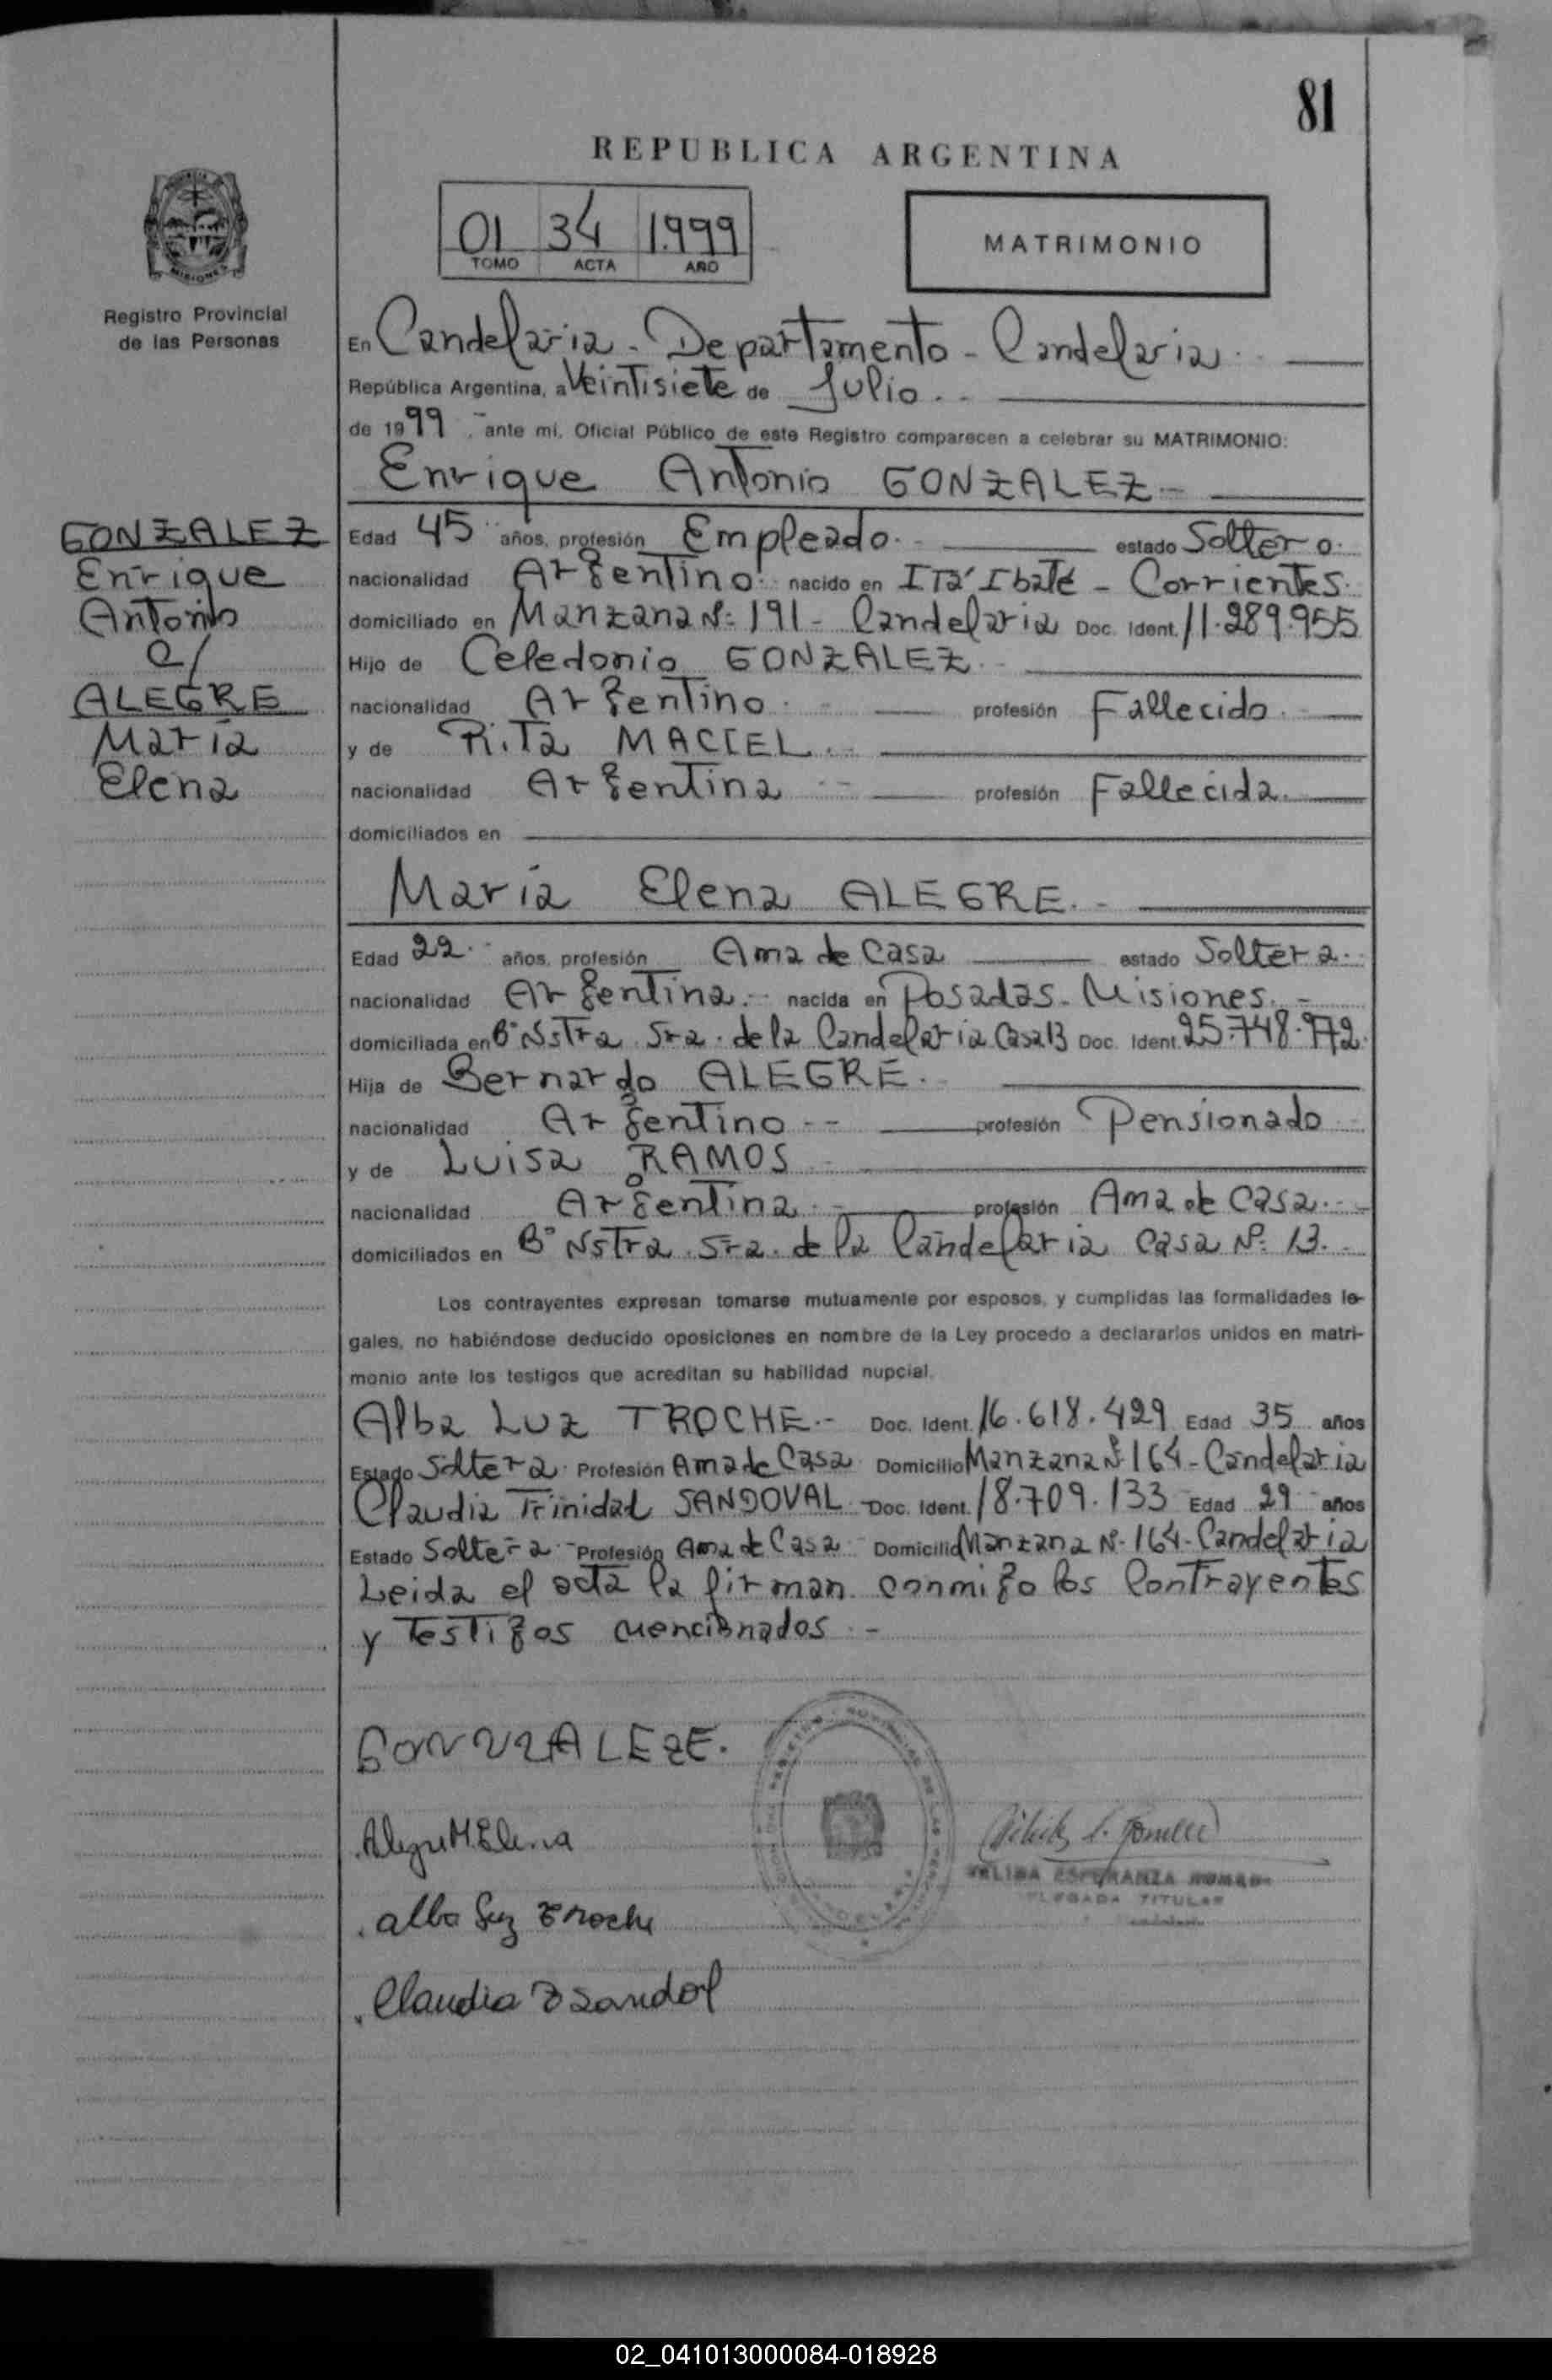 81
REPUBLICA ARGENTINA
01 34 1.999
TOMO ACTA AÑO
MATRIMONIO
Registro Provincial
de las Personas
En Candelaria - Departamento - Candelaria.
República Argentina, a Veintisiete de Julio.
de 1999, ante mí, Oficial Público de este Registro comparecen a celebrar su MATRIMONIO:
Enrique Antonio GONZALEZ
GONZALEZ
Enrique
Antonio
c/
ALEGRE
María
Elena
Edad 45 años, profesión Empleado. estado Soltero.
nacionalidad Argentino. nacido en Itá Ibaté - Corrientes.
domiciliado en Manzana Nº 191 - Candelaria Doc. Ident. 11.289.955
Hijo de Celedonio GONZALEZ.
nacionalidad Argentino. profesión Fallecido.
y de Rita MACIEL.
nacionalidad Argentina profesión Fallecida.
domiciliados en
María Elena ALEGRE.
Edad 22. años, profesión Ama de Casa estado Soltera.
nacionalidad Argentina. nacida en Posadas - Misiones.
domiciliada en Bº Nstra. Sra. de la Candelaria Casa 13 Doc. Ident. 25.748.972.
Hija de Bernardo ALEGRE.
nacionalidad Argentino profesión Pensionado
y de Luisa RAMOS
nacionalidad Argentina. profesión Ama de Casa.
domiciliados en Bº Nstra. Sra. de la Candelaria Casa Nº 13.
Los contrayentes expresan tomarse mutuamente por esposos, y cumplidas las formalidades le-
gales, no habiéndose deducido oposiciones en nombre de la Ley procedo a declararlos unidos en matri-
monio ante los testigos que acreditan su habilidad nupcial.
Alba Luz TROCHE.- Doc. Ident. 16.618.429 Edad 35 años
Estado Soltera. Profesión Ama de Casa Domicilio Manzana Nº 164 - Candelaria
Claudia Trinidad SANDOVAL Doc. Ident. 18.709.133 Edad 29 años
Estado Soltera Profesión Ama de Casa Domicilio Manzana Nº 164 - Candelaria
Leida el acta la firman conmigo los Contrayentes
y Testigos mencionados.-
Alegre M. Elena
ESPERANZA
TITULAR
alba luz Troche
Claudia T
02_041013000084-018928